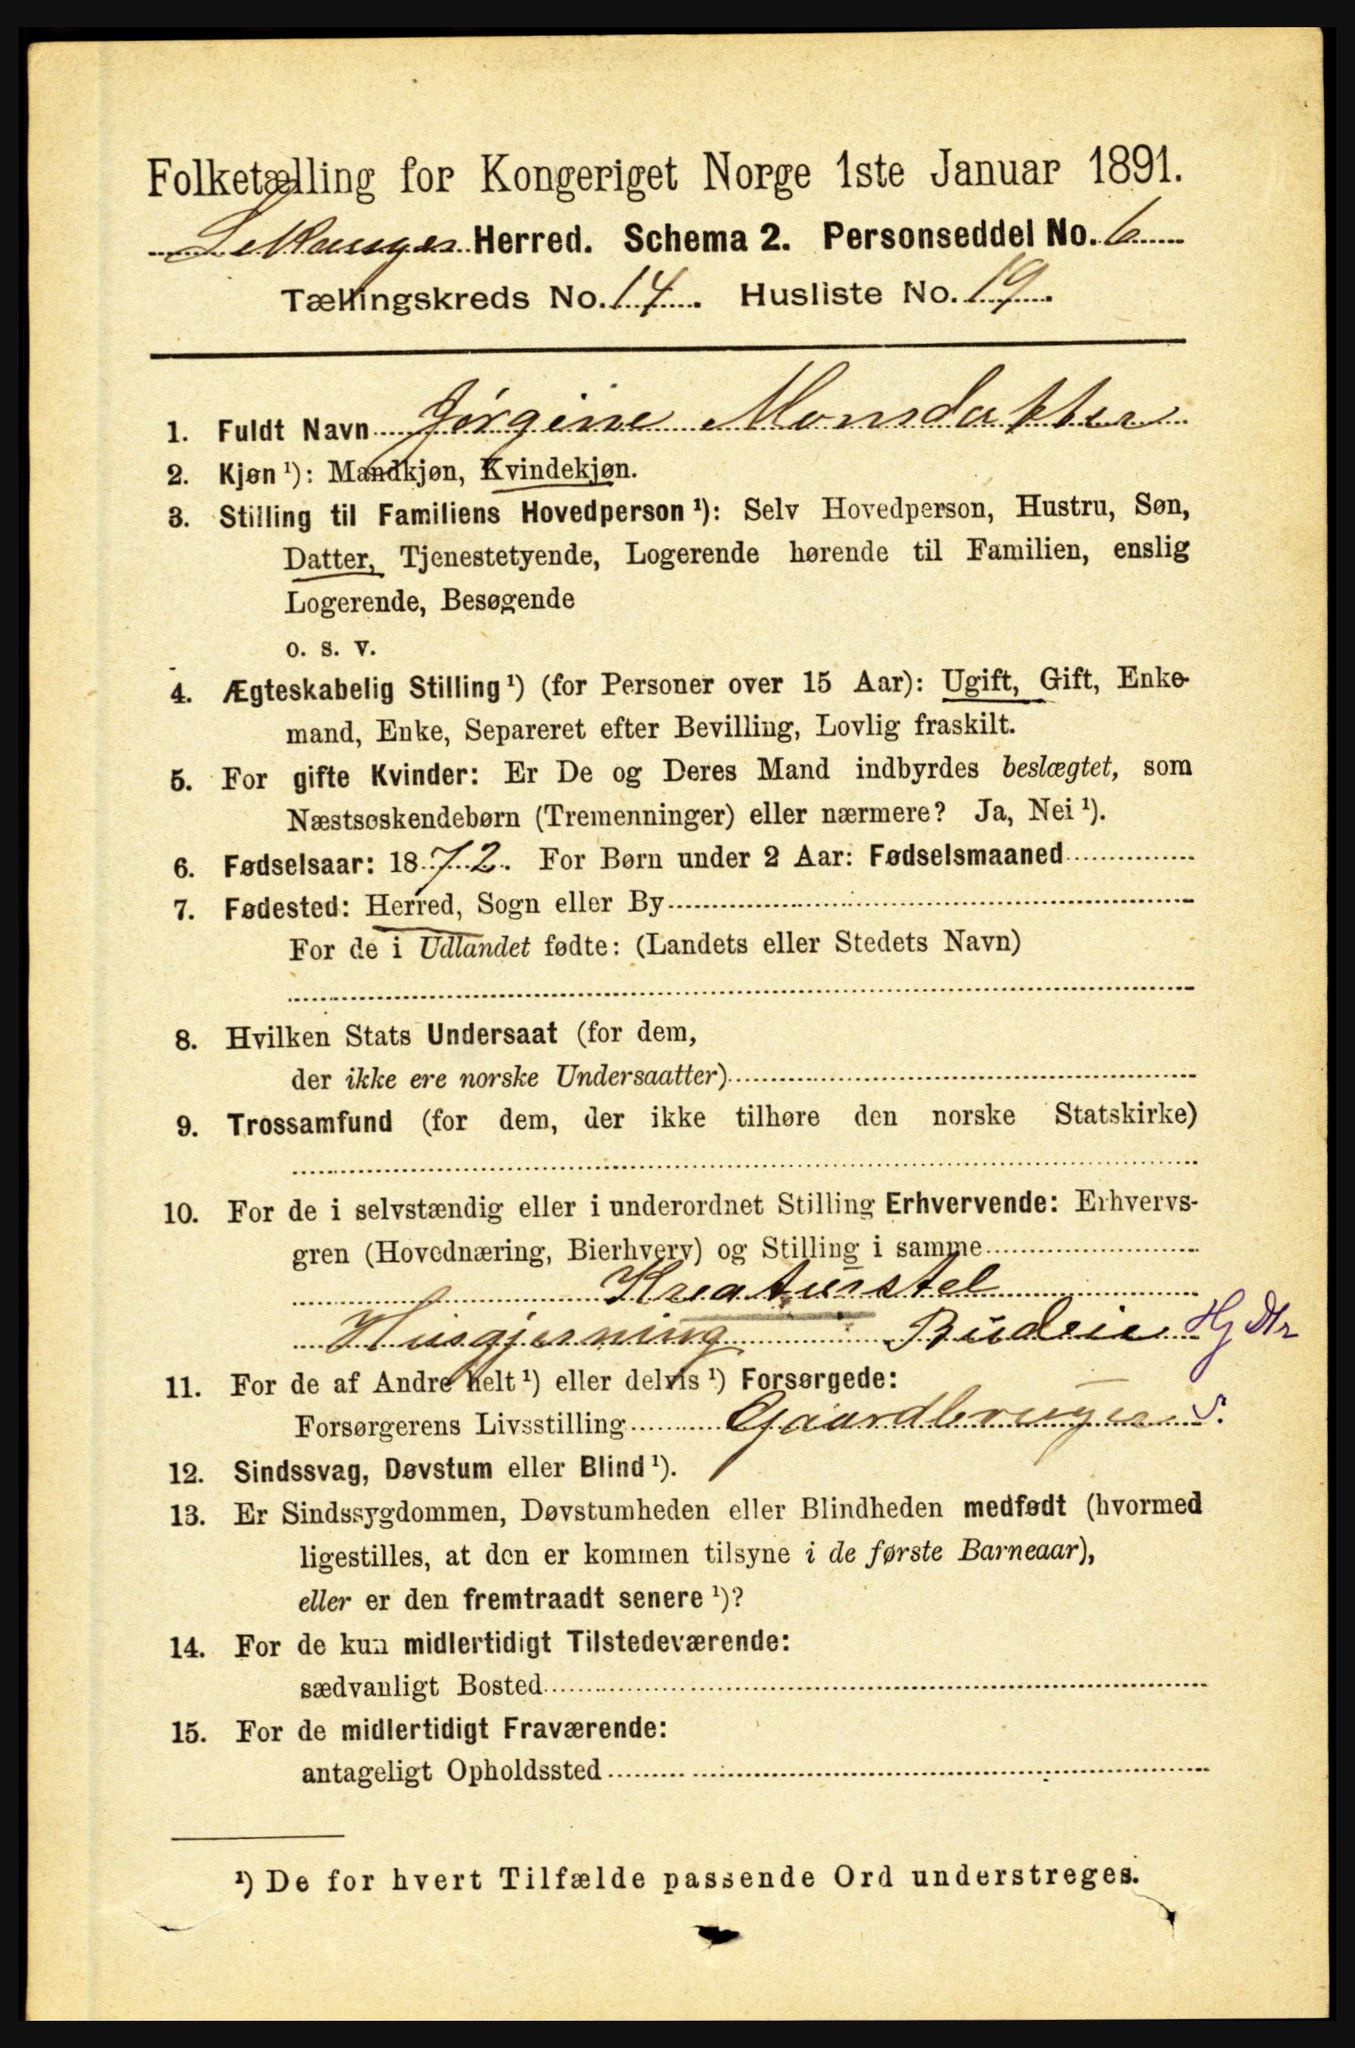 Folketælling for Kongeriget Norge 1ste Januar 1891.
Leikanger Herred. Schema 2. Personseddel No. 6
Tællingskreds No. 14. Husliste No. 19.
1. Fuldt Navn Jørgine Monsdatter
2. Kjøn ¹): Mandkjøn, Kvindekjøn.
3. Stilling til Familiens Hovedperson ¹): Selv Hovedperson, Hustru, Søn,
Datter, Tjenestetyende, Logerende hørende til Familien, enslig
Logerende, Besøgende
o. s. v.
4. Ægteskabelig Stilling ¹) (for Personer over 15 Aar): Ugift, Gift, Enke-
mand, Enke, Separeret efter Bevilling, Lovlig fraskilt.
5. For gifte Kvinder: Er De og Deres Mand indbyrdes beslægtet, som
Næstsøskendebørn (Tremenninger) eller nærmere? Ja, Nei ¹).
6. Fødselsaar: 1872. For Børn under 2 Aar: Fødselsmaaned
7. Fødested: Herred, Sogn eller By
For de i Udlandet fødte: (Landets eller Stedets Navn)
8. Hvilken Stats Undersaat (for dem,
der ikke ere norske Undersaatter)
9. Trossamfund (for dem, der ikke tilhøre den norske Statskirke)
10. For de i selvstændig eller i underordnet Stilling Erhvervende: Erhvervs-
gren (Hovednæring, Bierhverv) og Stilling i samme
Kreaturstel
Husgjerning Budeie Hj Dtr
11. For de af Andre helt ¹) eller delvis ¹) Forsørgede:
Forsørgerens Livsstilling Gaardbruger S.
12. Sindssvag, Døvstum eller Blind ¹).
13. Er Sindssygdommen, Døvstumheden eller Blindheden medfødt (hvormed
ligestilles, at den er kommen tilsyne i de første Barneaar),
eller er den fremtraadt senere ¹)?
14. For de kun midlertidigt Tilstedeværende:
sædvanligt Bosted
15. For de midlertidigt Fraværende:
antageligt Opholdssted
¹) De for hvert Tilfælde passende Ord understreges.